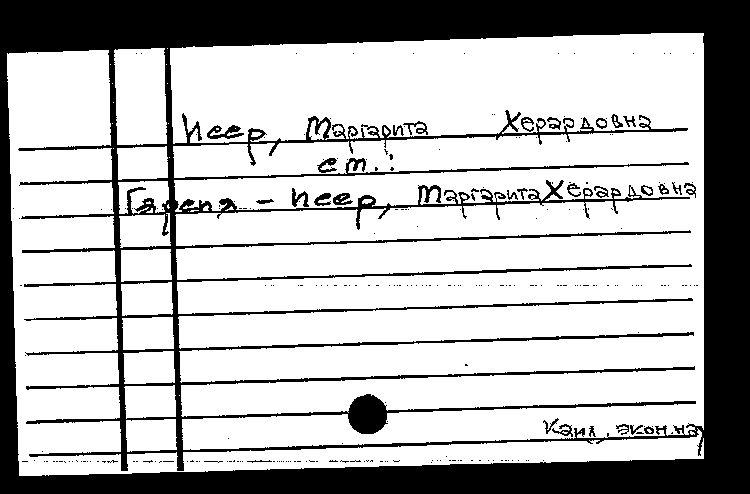 Иеер, Маргарита Херардовна
ст.:
Гарспя - Иеер, Маргарита Херардовна
Канд. экон. нау